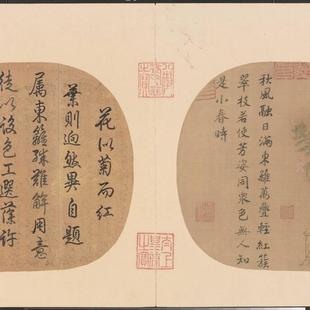 秋風融日滿東籬萬疊輕紅簇
翠枝若使芳姿同衆色無人知
是小春時
花似菊而紅
葉則迥然異自題
属東籬殊難解用意
徒以設色工選許